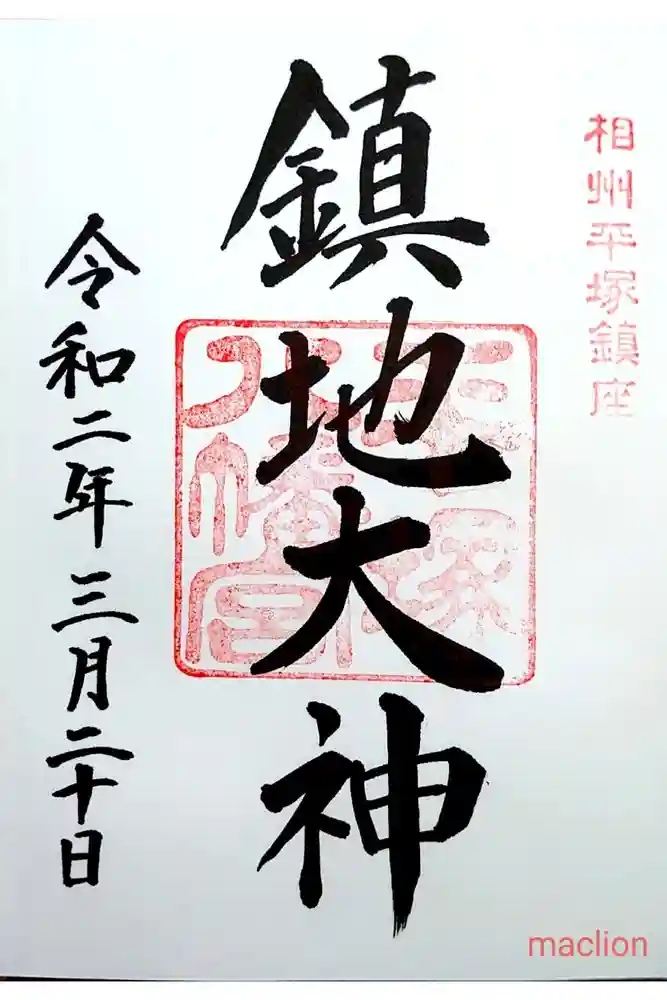 相州平塚鎮座
鎮地大神
平塚
八幡宮
令和二年三月二十日
maclion